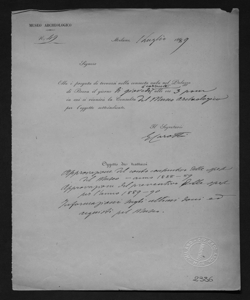 MUSEO ARCHEOLOGICO
N. 49
Milano, 1 luglio 1889
Signore
Ella è pregato di trovarsi nella consueta sala nel Palazzo
di Brera il giorno di giovedì alle ore 3 pom
in cui si riunirà la Consulta del Museo Archeologico
per l'oggetto sottoindicato.
Il Segretario
Oggetto da trattarsi
Approvazione del conto consuntivo delle spese
del Museo - anno 1888-89
Approvazione del preventivo delle spese
per l'anno 1889-90
Informazioni sugli ultimi doni ed
acquisti pel Museo.